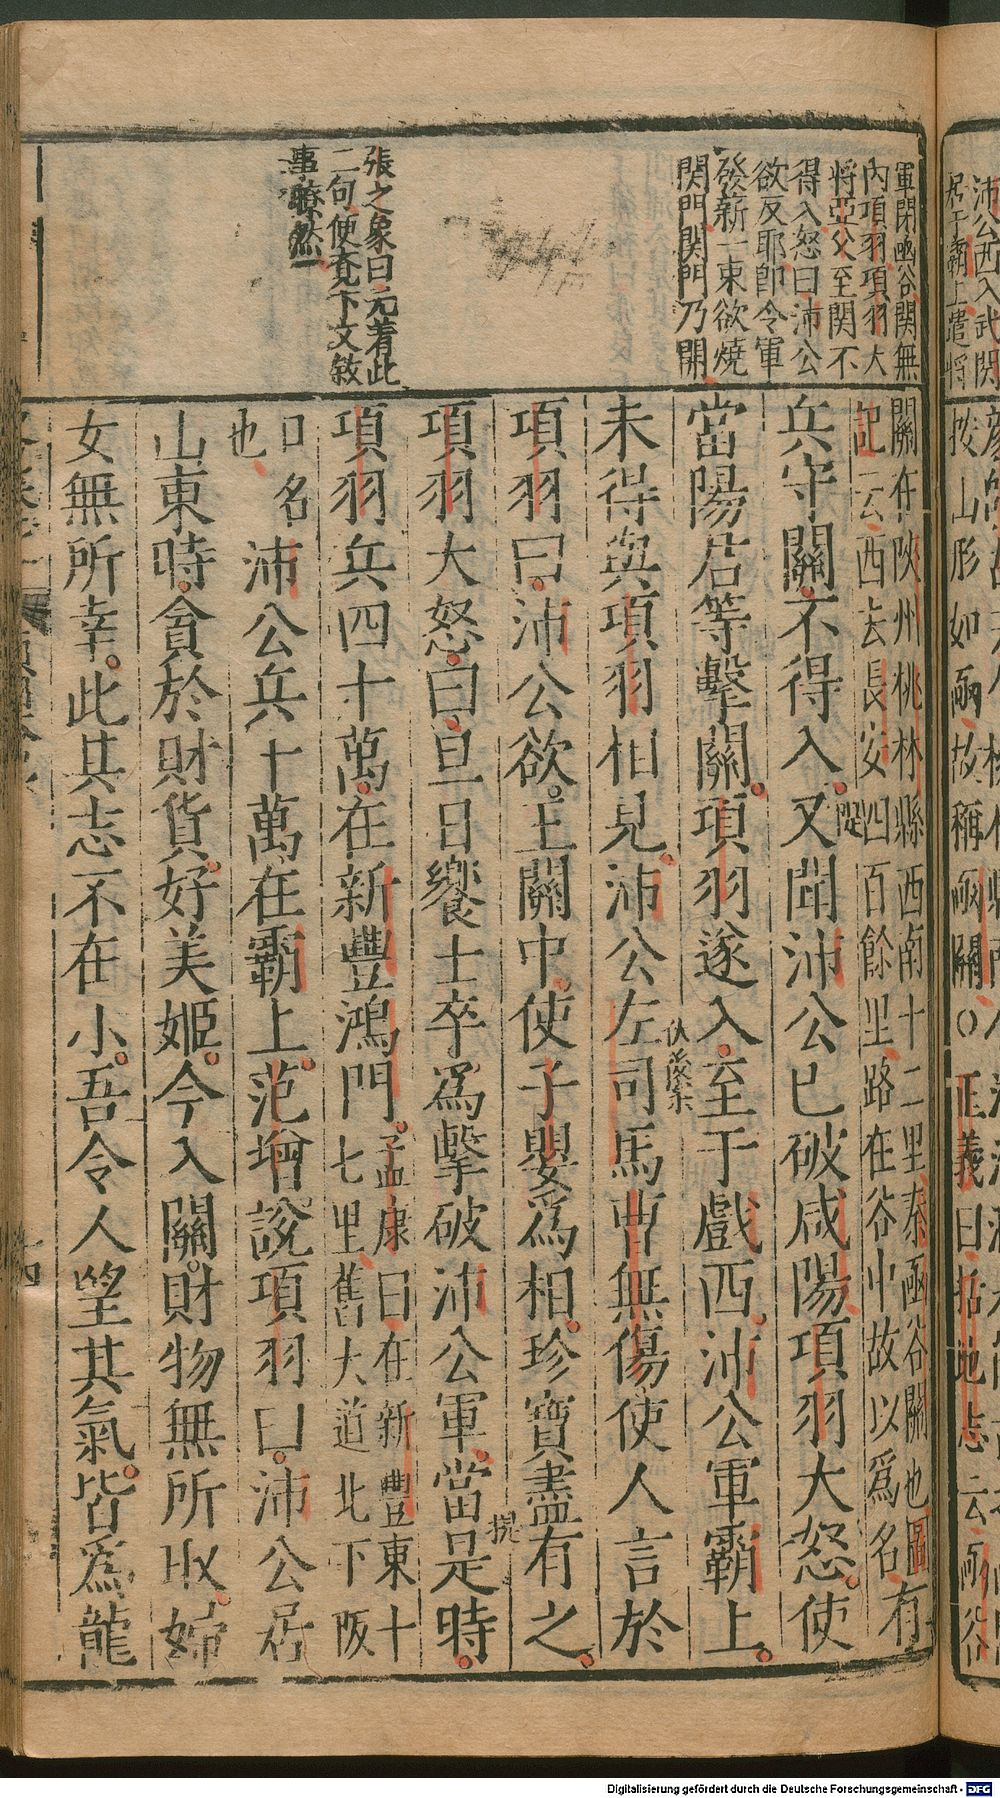 沛公西入武関
居于霸上遣將
軍閉函谷関無
内項羽項羽大
將亞父至関不
得入怒曰沛公
欲反耶即令軍
發薪一束欲燒
関門関門乃開
張之象曰先着此
二句便竟下文敘
事瞭然
拔山形如函故稱函關○正義曰括地志云函谷
關在陝州桃林縣西南十二里秦函谷關也圖
記云西去長安四百餘里路在谷中故以爲名有
兵守關不得入又聞沛公已破咸陽項羽大怒使
當陽君等擊關項羽遂入至于戲西沛公軍霸上
未得與項羽相見沛公左司馬曹無傷使人言於
項羽曰沛公欲王關中使子嬰爲相珍寶盡有之
項羽大怒曰旦日饗士卒爲擊破沛公軍當是時
提
項羽兵四十萬在新豐鴻門孟康曰在新豐東十
七里舊大道北下阪
口名
也
沛公兵十萬在霸上范增說項羽曰沛公居
山東時貪於財貨好美姬今入關財物無所取婦
女無所幸此其志不在小吾令人望其氣皆爲龍
十四
Digitalisierung gefördert durch die Deutsche Forschungsgemeinschaft - DFG